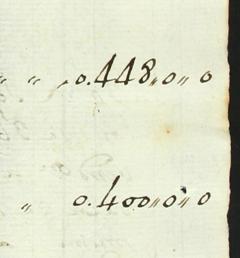 " " 0.448"0" 0
" 0.400"0" 0